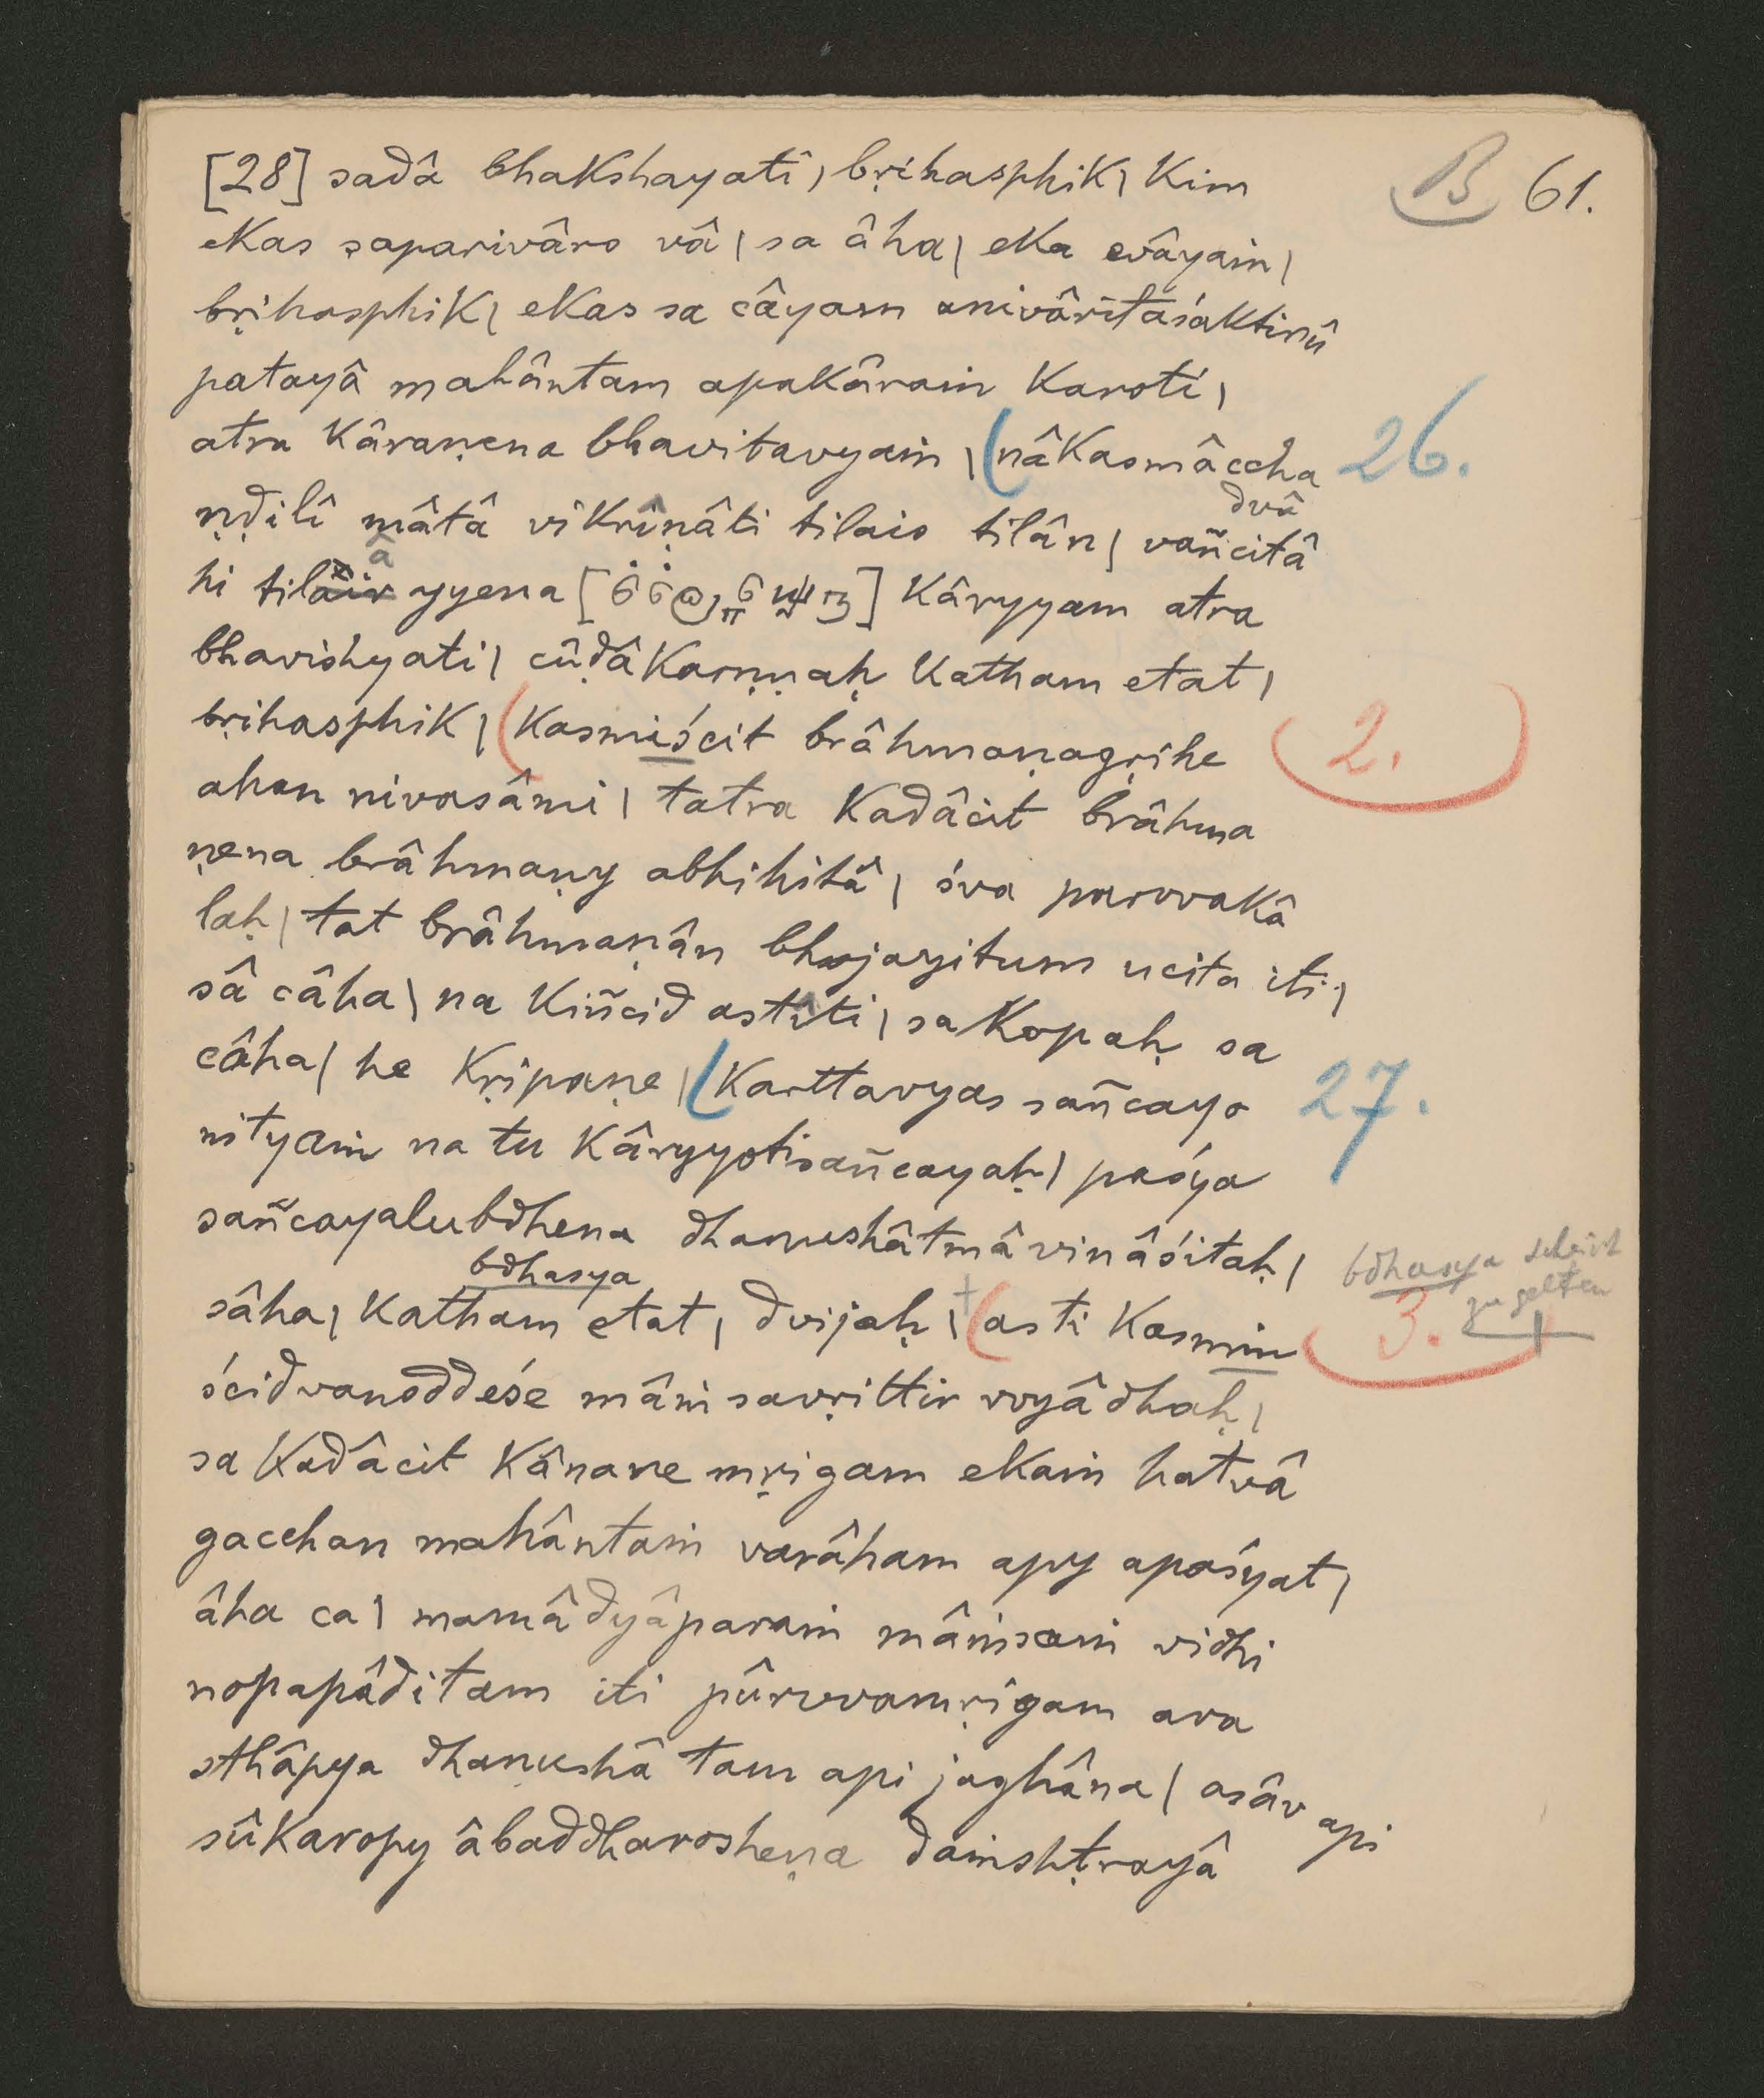 B 61.
[28] sadâ bhakshayati, bṛihasphik, kim
ekas saparivâro vâ | sa âha | eka evâyaṁ |
bṛihasphik | ekas sa câyam anivâritaśaktirû
patayâ mahântam apakâraṁ karoti |
atra kâraṇena bhavitavyaṁ | (nâkasmâccha 26.
ṇḍilî mâtâ vikrîṇâti tilais tilân | vañcitâ
dvâ
hi tilair yyena [ ] kâryyam atra
â
bhavishyati | cûḍâkarṇṇaḥ katham etat |
bṛihasphik | (kasmiścit brâhmaṇagṛihe 2.
ahan nivasâmi | tatra kadâcit brâhma
ṇena brâhmaṇy abhihitâ | śva parvvakâ
laḥ | tat brâhmaṇân bhojayitum ucita iti |
sâ câha | na kiñcid astîti | sakopaḥ sa
câha | he kṛipaṇe | (karttavyas sañcayo 27.
nityaṁ na tu kâryyotisañcayaḥ | paśya
sañcayalubdhena dhanushâtmâ vinâśitaḥ |
bdhasya
bdhasya scheint
zu gelten
sâha | katham etat | dvijaḥ | + (asti kasmin 3.
ścidvanoddeśe mâṁsavṛittir vvyâdhaḥ |
sa kadâcit kânane mṛigam ekaṁ hatvâ
gacchan mahântaṁ varâham apy apaśyat |
âha ca | mamâdyâparaṁ mâṁsaṁ vidhi
nopapâditam iti pûrvvamṛigam ava
sthâpya dhanushâ tam api jaghâna | asâv api
sûkaropy âbaddharosheṇa daṁshṭrayâ